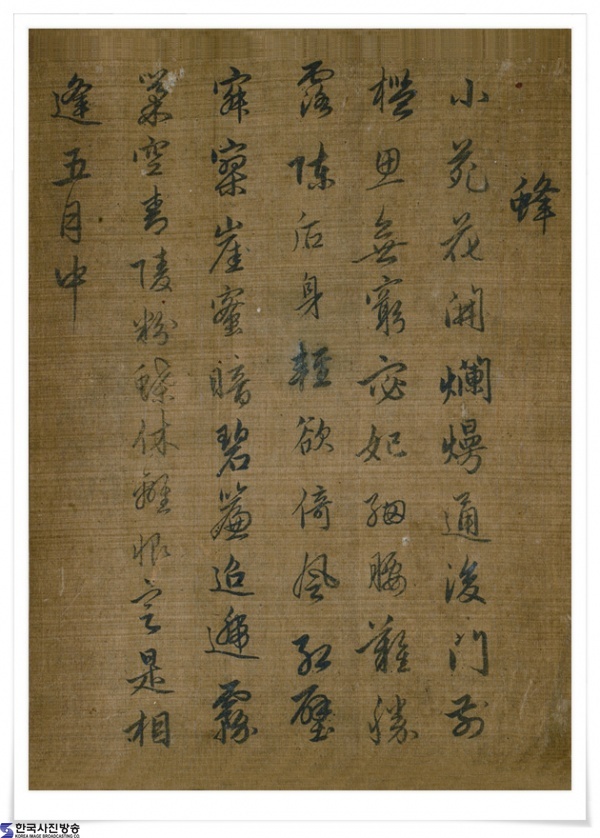 蜂
小苑花開爛熳通後門前
檻思無窮宓妃細腰難勝
露陳后身輕欲倚風紅壁
寂寞崖蜜暗碧簾迢遞霧
巢空青陵粉蝶休離恨定是相
逢五月中
한국사진방송
KOREA IMAGE BROADCASTING CO.